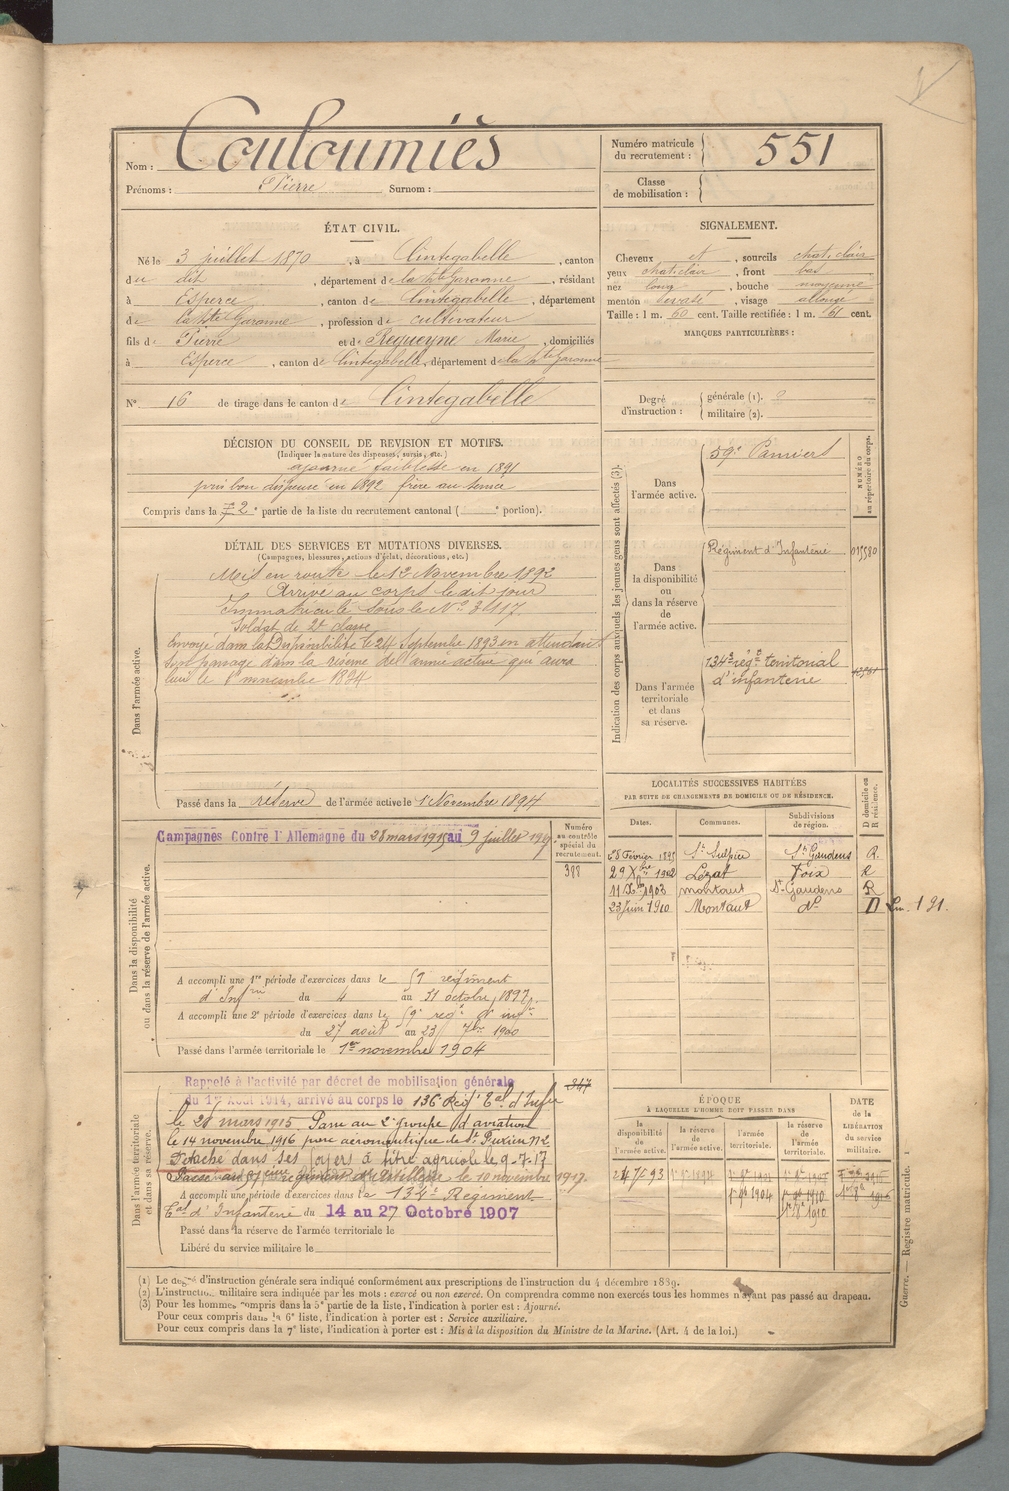 Nom : Couloumiès
Prénoms : Pierre Surnom :
Numéro matricule du recrutement : 551
Classe de mobilisation :
ÉTAT CIVIL.
Né le 3 juillet 1870, à Cintegabelle, canton
du dit, département de la Hte Garonne, résidant
à Esperce, canton de Cintegabelle, département
de la Hte Garonne, profession de cultivateur
fils de Pierre et de Requeyne Marie, domiciliés
à Esperce, canton de Cintegabelle, département de la Hte Garonne
N° 16 de tirage dans le canton de Cintegabelle
SIGNALEMENT.
Cheveux et, sourcils chat. clair
yeux chat. clair, front bas
nez long, bouche moyenne
menton, visage allongé
Taille : 1 m. 60 cent. Taille rectifiée : 1 m. 61 cent.
MARQUES PARTICULIÈRES :
Degré d'instruction : générale (1). 2
militaire (2).
DÉCISION DU CONSEIL DE REVISION ET MOTIFS.
(Indiquer la nature des dispenses, sursis, etc.)
ajourné faiblesse en 1891
puis bon dispensé en 1892 frère au service
Compris dans la 2e partie de la liste du recrutement cantonal ( e portion).
DÉTAIL DES SERVICES ET MUTATIONS DIVERSES.
(Campagnes, blessures, actions d'éclat, décorations, etc.)
Dans l'armée active.
Mis en route le 12 Novembre 1892
Arrivé au corps le dit jour
Immatriculé sous le N° 3117
Soldat de 2e classe
Envoyé dans la Disponibilité le 24 Septembre 1893 en attendant
son passage dans la réserve de l'armée active qui aura
lieu le 1er novembre 1894
Passé dans la réserve de l'armée active le 1 Novembre 1894
Indication des corps auxquels les jeunes gens sont affectés (3).
NUMÉRO au répertoire du corps.
Dans l'armée active.
59e Pamiers
Dans la disponibilité ou dans la réserve de l'armée active.
Régiment d'Infanterie
Dans l'armée territoriale et dans sa réserve.
134e régt territorial
d'infanterie
LOCALITÉS SUCCESSIVES HABITÉES
PAR SUITE DE CHANGEMENTS DE DOMICILE OU DE RÉSIDENCE.
Dates. Communes. Subdivisions de région. D domicile ou R résidence.
Février 1895 St Sulpice St Gaudens R.
29 Xbre 1902 Lézat Foix R
11 Xbre 1903 montaut St-Gaudens R
23 Juin 1910 Montaut do D
Dans la disponibilité ou dans la réserve de l'armée active.
Campagnes Contre l'Allemagne du 28 mars 1915 au 9 juillet 1917
Numéro au contrôle spécial du recrutement.
388
A accompli une 1re période d'exercices dans le 59 régiment
d'Infrie du 4 au 31 octobre 1897
A accompli une 2e période d'exercices dans le 59e regt d'infie
du 27 août au 23 7bre 1900
Passé dans l'armée territoriale le 1er novembre 1904
Dans l'armée territoriale et dans sa réserve.
Rappelé à l'activité par décret de mobilisation générale
du 1er Août 1914, arrivé au corps le 136 Regt Tal d'Infie
le 28 mars 1915. Passé au 2e groupe d'aviation
le 14 novembre 1916 parc aéronautique de
Détaché dans ses foyers à titre agricole le 9-7-17
Passé au 57ième régiment d'Artillerie le 10 novembre 1917.
A accompli une période d'exercices dans le 134e Régiment
Tal d'Infanterie du 14 au 27 Octobre 1907
Passé dans la réserve de l'armée territoriale le
Libéré du service militaire le
347
ÉPOQUE
À LAQUELLE L'HOMME DOIT PASSER DANS
la disponibilité de l'armée active. la réserve de l'armée active. l'armée territoriale. la réserve de l'armée territoriale. DATE de la LIBÉRATION du service militaire.
24 7 93
1er 9b 1904
1er 9b 1910
(1) Le degré d'instruction générale sera indiqué conformément aux prescriptions de l'instruction du 4 décembre 1889.
(2) L'instruction militaire sera indiquée par les mots : exercé ou non exercé. On comprendra comme non exercés tous les hommes n'ayant pas passé au drapeau.
(3) Pour les hommes compris dans la 5e partie de la liste, l'indication à porter est : Ajourné.
Pour ceux compris dans la 6e liste, l'indication à porter est : Service auxiliaire.
Pour ceux compris dans la 7e liste, l'indication à porter est : Mis à la disposition du Ministre de la Marine. (Art. 4 de la loi.)
Guerre. — Registre matricule. 1